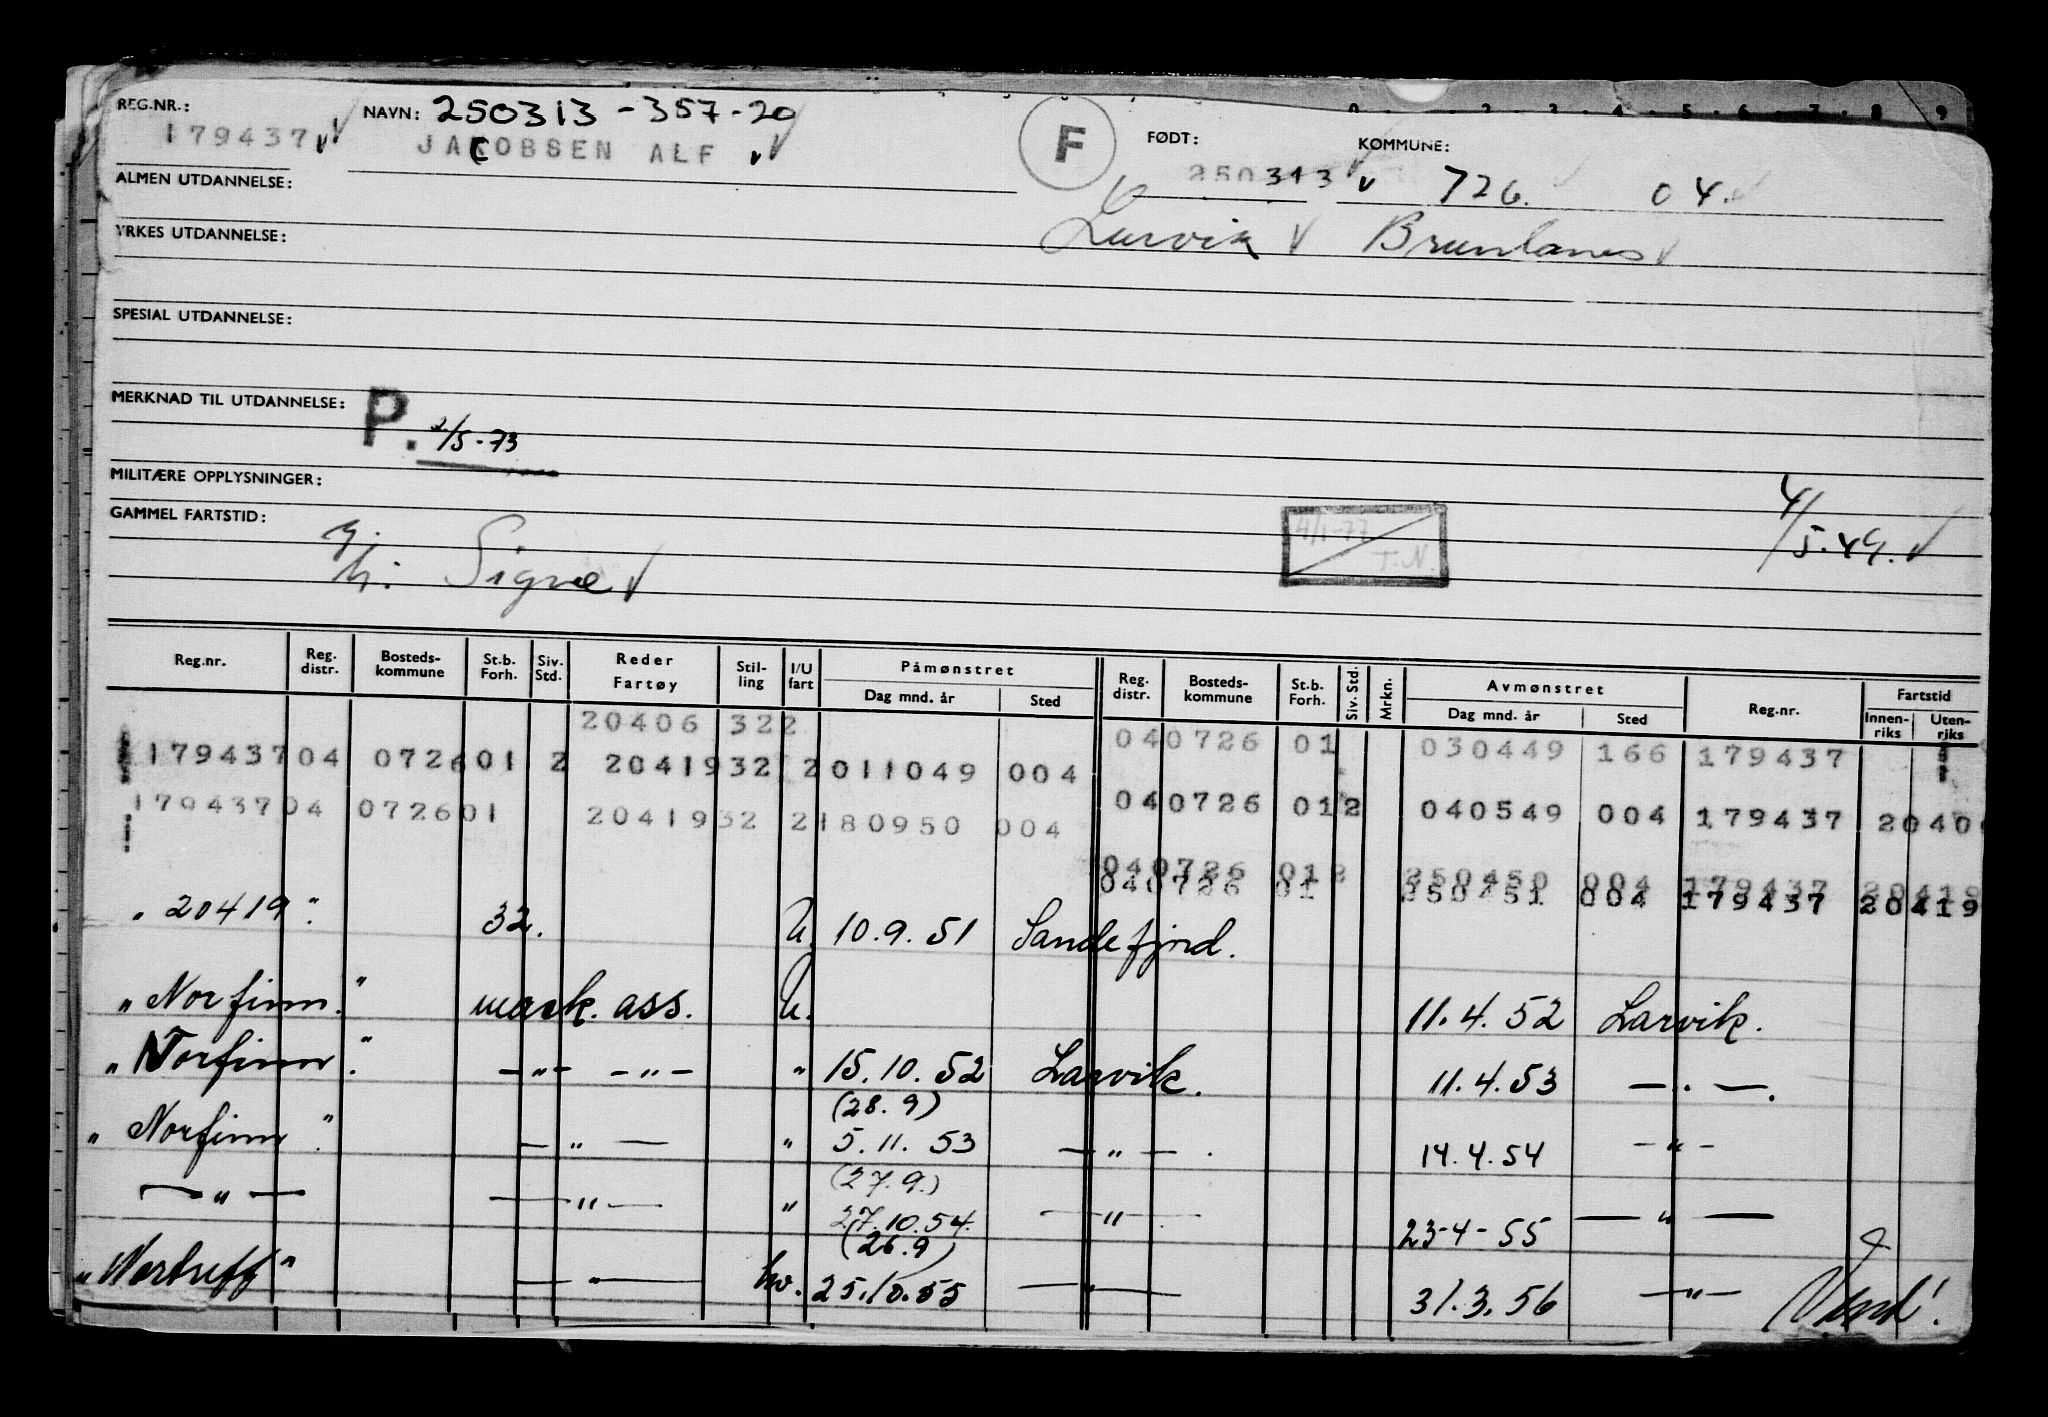 REG.NR.: NAVN: 250313-357-20 F FØDT: KOMMUNE:
179437 JACOBSEN ALF 250313 726. 04.
ALMEN UTDANNELSE:
YRKES UTDANNELSE: Larvik Brunlanes
SPESIAL UTDANNELSE:
MERKNAD TIL UTDANNELSE: P. 2/5-73
MILITÆRE OPPLYSNINGER:
GAMMEL FARTSTID: 4/1-77 T.N. 4/5.49.
Signe
Reg.nr. Reg. distr. Bosteds-kommune St.b. Forh. Siv. Std. Reder Fartøy Stil-ling I/U fart Påmønstret Reg. distr. Bosteds-kommune St.b. Forh. Siv. Std. Mrkn. Avmønstret Reg.nr. Fartstid
Dag mnd. år Sted Dag mnd. år Sted Innen-riks Uten-riks
20406 322 04 0726 01 030449 166 179437
179437 04 0726 01 2 20419 32 2 011049 004
04 0726 01 2 040549 004 179437 2040
179437 04 0726 01 20419 32 2 180950 004
04 0726 01 2 250450 004 179437 20419
04 0726 01 250451 004 179437 20419
"20419". 32. U. 10.9.51 Sandefjord.
"Norfinn." mask. ass. U. 11.4.52 Larvik.
"Norfinn". -"- -"- " 15.10.52 Larvik. 11.4.53 - " -.
(28.9)
"Norfinn". - " - " 5.11.53 - " - . 14.4.54 - " -
(27.9.)
- " - - " - " 27.10.54. - " - 23-4-55 - " -
(26.9)
" - " - hv. 25.10.55 - " - 31.3.56 - " - Vend!